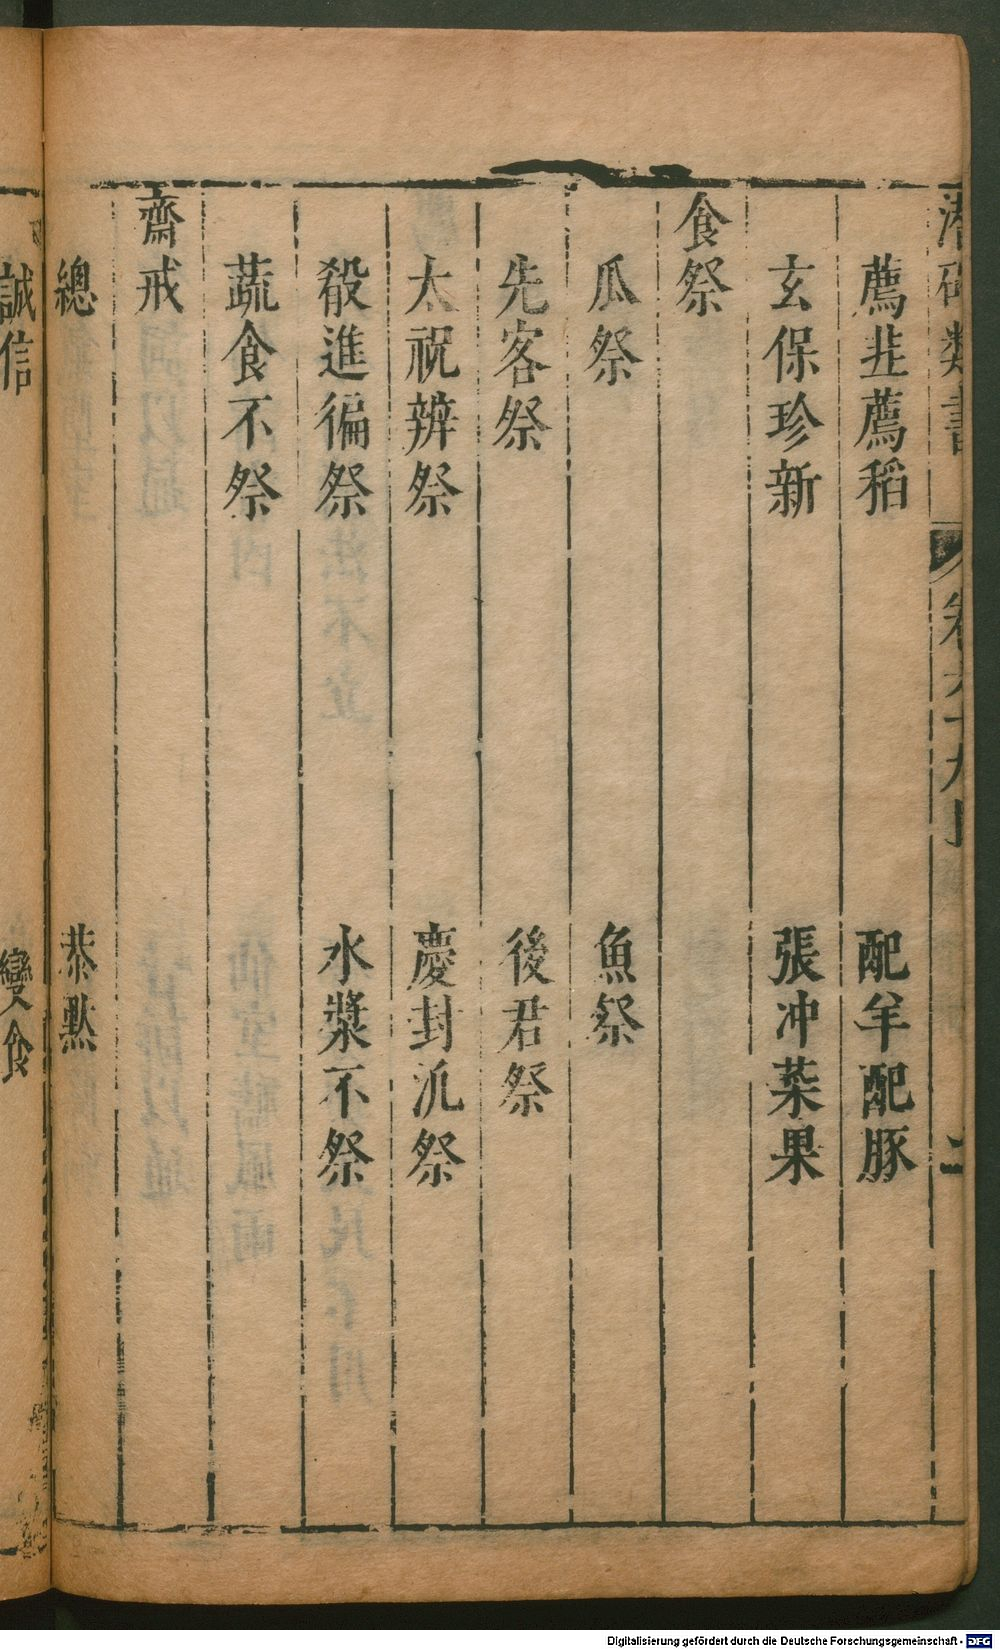 潛确類書 卷六十九目 二
薦韭薦稻 配羊配豚
玄保珍新 張冲菜果
食祭
瓜祭 魚祭
先客祭 後君祭
太祝辨祭 慶封汎祭
殽進徧祭 水漿不祭
蔬食不祭
齋戒
總 恭默
誠信 變食
Digitalisierung gefördert durch die Deutsche Forschungsgemeinschaft - DFG